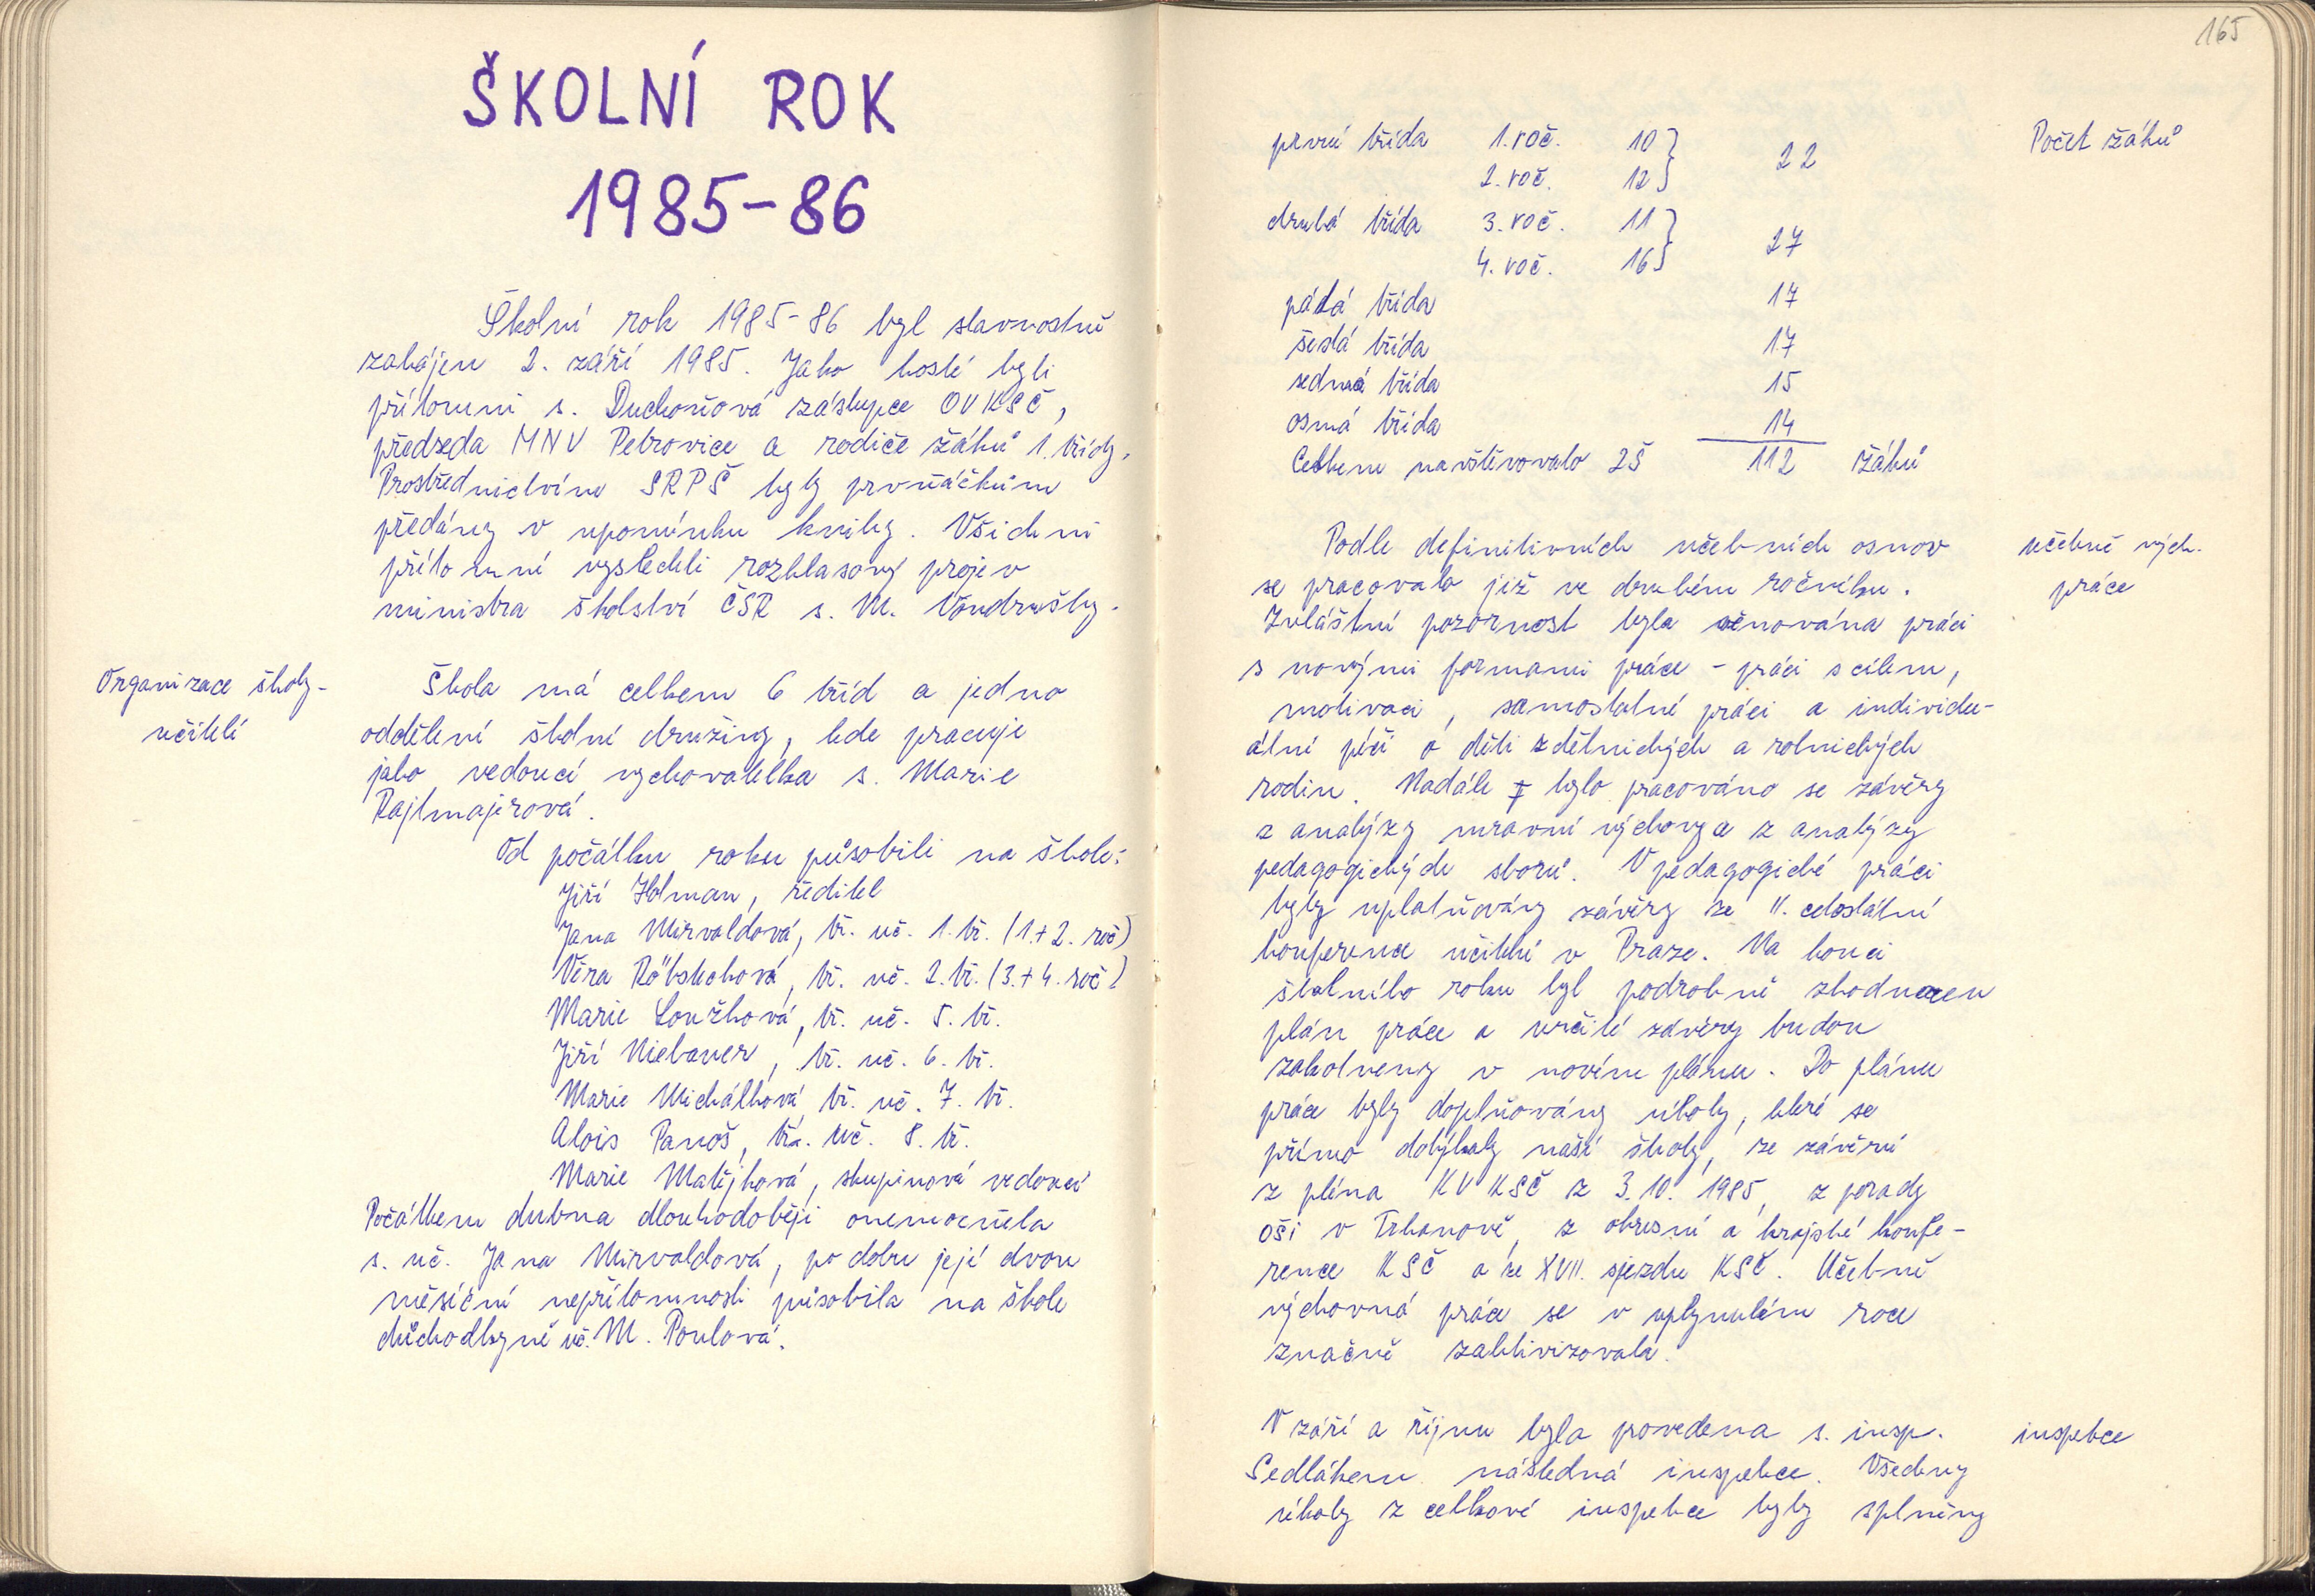 ŠKOLNÍ ROK
1985-86
Školní rok 1985-86 byl slavnostně
zahájen 2. září 1985. Jako hosté byli
přítomni s. Duchoňová zástupce OV KSČ,
předseda MNV Petrovice a rodiče žáků 1. třídy.
Prostřednictvím SRPŠ byly prvňáčkům
předány v upomínku knihy. Všichni
přítomní vyslechli rozhlasový projev
ministra školství ČSR s. M. Vondrušky.
Organizace školy-
učitelé
Škola má celkem 6 tříd a jedno
oddělení školní družiny, kde pracuje
jako vedoucí vychovatelka s. Marie
Rajtmajerová.
Od počátku roku působili na škole:
Jiří Holman, ředitel
Jana Mirvaldová, tř. uč. 1. tř. (1.+2. roč)
Věra Röbschová, tř. uč. 2. tř. (3.+4. roč)
Marie Loužková, tř. uč. 5. tř.
Jiří Niebauer, tř. uč. 6. tř.
Marie Michálková, tř. uč. 7. tř.
Alois Panoš, tř. uč. 8. tř.
Marie Matějková, skupinová vedoucí
Počátkem dubna dlouhodoběji onemocněla
s. uč. Jana Mirvaldová, po dobu její dvou
měsíční nepřítomnosti působila na škole
důchodkyně uč. M. Poulová.
165
první třída 1. roč. 10 } 22
2. roč. 12 }
druhá třída 3. roč. 11 } 27
4. roč. 16 }
pátá třída 17
šestá třída 17
sedmá třída 15
osmá třída 14
Celkem navštěvovalo ZŠ 112 žáků
Počet žáků
Podle definitivních učebních osnov
se pracovalo již ve druhém ročníku.
Zvláštní pozornost byla věnována práci
s novými formami práce - práci s cílem,
motivaci, samostatné práci a individu-
ální péči o děti z dělnických a rolnických
rodin. Nadále bylo pracováno se závěry
z analýzy mravní výchovy a z analýzy
pedagogických sborů. V pedagogické práci
byly uplatňovány závěry ze II. celostátní
konference učitelů v Praze. Na konci
školního roku byl podrobně zhodnocen
plán práce a určité závěry budou
zakotveny v novém plánu. Do plánu
práce byly doplňovány úkoly, které se
přímo dotýkaly naší školy, ze závěrů
z pléna KV KSČ z 3.10. 1985, z porady
OŠI v Trhanově, z okresní a krajské konfe-
rence KSČ a ze XVII. sjezdu KSČ. Učebně
výchovná práce se v uplynulém roce
značně zaktivizovala.
učebně vých.
práce
V září a říjnu byla provedena s. insp.
Sedlákem následná inspekce. Všechny
úkoly z celkové inspekce byly splněny
inspekce